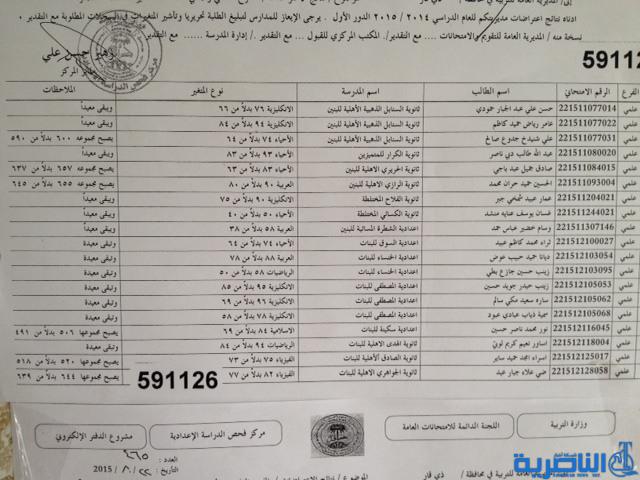 ادناه نتائج اعتراضات مديريتكم للعام الدراسي ٢٠١٤ / ٢٠١٥ الدور الأول . يرجى الإيعاز للمدارس لتبليغ الطلبة تحريريا وتأشير المتغيرات في السجلات المطلوبة مع التقدير .
نسخة منه / المديرية العامة للتقويم والامتحانات ... مع التقدير / المكتب المركزي للقبول .. مع التقدير / إدارة المدرسة ... مع التقدير
591126
الفرع الرقم الامتحاني اسم الطالب اسم المدرسة نوع المتغير الملاحظات
علمي 221511077014 حسن علي عبد الجبار حمودي ثانوية السنابل الذهبية الأهلية للبنين الانكليزية ٧٦ بدلاً من ٦٦ ويبقى معيداً
علمي 221511077022 عامر رياض حميد كاظم ثانوية السنابل الذهبية الأهلية للبنين الانكليزية ٩٤ بدلاً من ٨٤ ويبقى معيداً
علمي 221511077031 علي شنيدخ جدوع صالح ثانوية السنابل الذهبية الأهلية للبنين الأحياء ٧٤ بدلاً من ٦٤ يصبح مجموعه ٦٠٠ بدلاً من ٥٩٠
علمي 221511080020 عبد الله طالب ناصر ثانوية الكرار للمتميزين الأحياء ٩٣ بدلاً من ٨٣ ويبقى معيداً
علمي 221511084015 صادق جميل عبد ياجي ثانوية الحريري الاهلية للبنين الأحياء ٨٣ بدلاً من ٦٣ يصبح مجموعه ٦٥٧ بدلاً من ٦٣٧
علمي 221511093004 الحسين حميد حران محمد ثانوية الرازي الاهلية للبنين العربية ٩٠ بدلاً من ٨٠ يصبح مجموعه ٦٥٥ بدلاً من ٦٤٥
علمي 221511204021 عمار عبيد جبر ثانوية الفلاح المختلطة الانكليزية ٩٠ بدلاً من ٧٥ ويبقى معيداً
علمي 221511244021 غسان يوسف عنايه منشد ثانوية الكسائي المختلطة الأحياء ٥٠ بدلاً من ٤٠ ويبقى معيداً
علمي 221511307146 وسام خضير عباس حمد اعدادية الشطرة المسائية للبنين العربية ٥٨ بدلاً من ٣٨ ويبقى معيداً
علمي 221512100027 ثراء محمد كاظم عبيد اعدادية السوق للبنات الأحياء ٧٤ بدلاً من ٦٤ وتبقى معيدة
علمي 221512103054 دنانا حميد حبيب عوض اعدادية الخنساء للبنات العربية ٨٨ بدلاً من ٧٨ وتبقى معيدة
علمي 221512103095 زينب حسين جازع بطي اعدادية الخنساء للبنات الرياضيات ٥٨ بدلاً من ٥٠ وتبقى معيدة
علمي 221512105053 زينب حيدر جويد حسين اعدادية المصطفى للبنات الانكليزية ٩٥ بدلاً من ٨٥ وتبقى معيدة
علمي 221512105062 ساره سعيد مكي سالم اعدادية المصطفى للبنات الانكليزية ٩٦ بدلاً من ٦٩ وتبقى معيدة
علمي 221512105068 سمية ذياب عبادي عبود اعدادية المصطفى للبنات الانكليزية ٧٨ بدلاً من ٥٨ وتبقى معيدة
علمي 221512116045 نور محمد ناصر حسين اعدادية سكينة للبنات الاسلامية ٨٤ بدلاً من ٦٩ يصبح مجموعها ٥٠٦ بدلاً من ٤٩١
علمي 221512118004 اساور نعيم كريم ثانوية الهدى الاهلية للبنات الرياضيات ٩٤ بدلاً من ٨٤ وتبقى معيدة
علمي 221512125017 اسراء امجد حميد ساير ثانوية الصادق الأهلية للبنات الفيزياء ٧٥ بدلاً من ٧٣ يصبح مجموعها ٥٢٠ بدلاً من ٥١٨
علمي 221512128058 ضي علاء جبار عبد ثانوية الجواهري الاهلية للبنات الفيزياء ٨٢ بدلاً من ٧٧ يصبح مجموعها ٦٤٤ بدلاً من ٦٣٩
591126
وزارة التربية اللجنة الدائمة للامتحانات العامة مركز فحص الدراسة الإعدادية مشروع الدفتر الإلكتروني
العدد : ٤٦٥
التاريخ : ٢٢ / ٨ / 2015
الناصرية